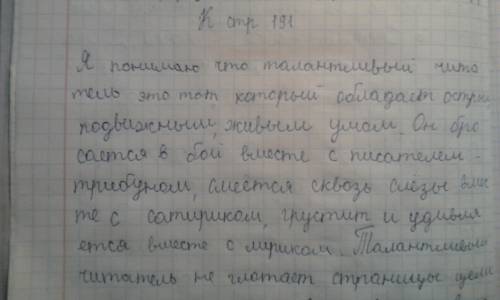 К стр 191
Я понимаю что талантливый чита
тель это тот который обладает остры
подвижным, живым умом. Он бро
сается в бой вместе с писателем -
трибуном, смеётся сквозь слёзы вмес
те с сатириком, грустит и удивля
ется вместе с лириком. Талантливый
читатель не глотает страницы цели